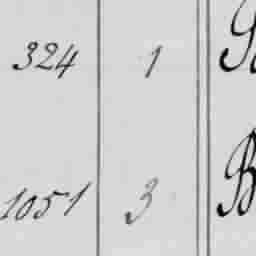 324 1
1051 3 B